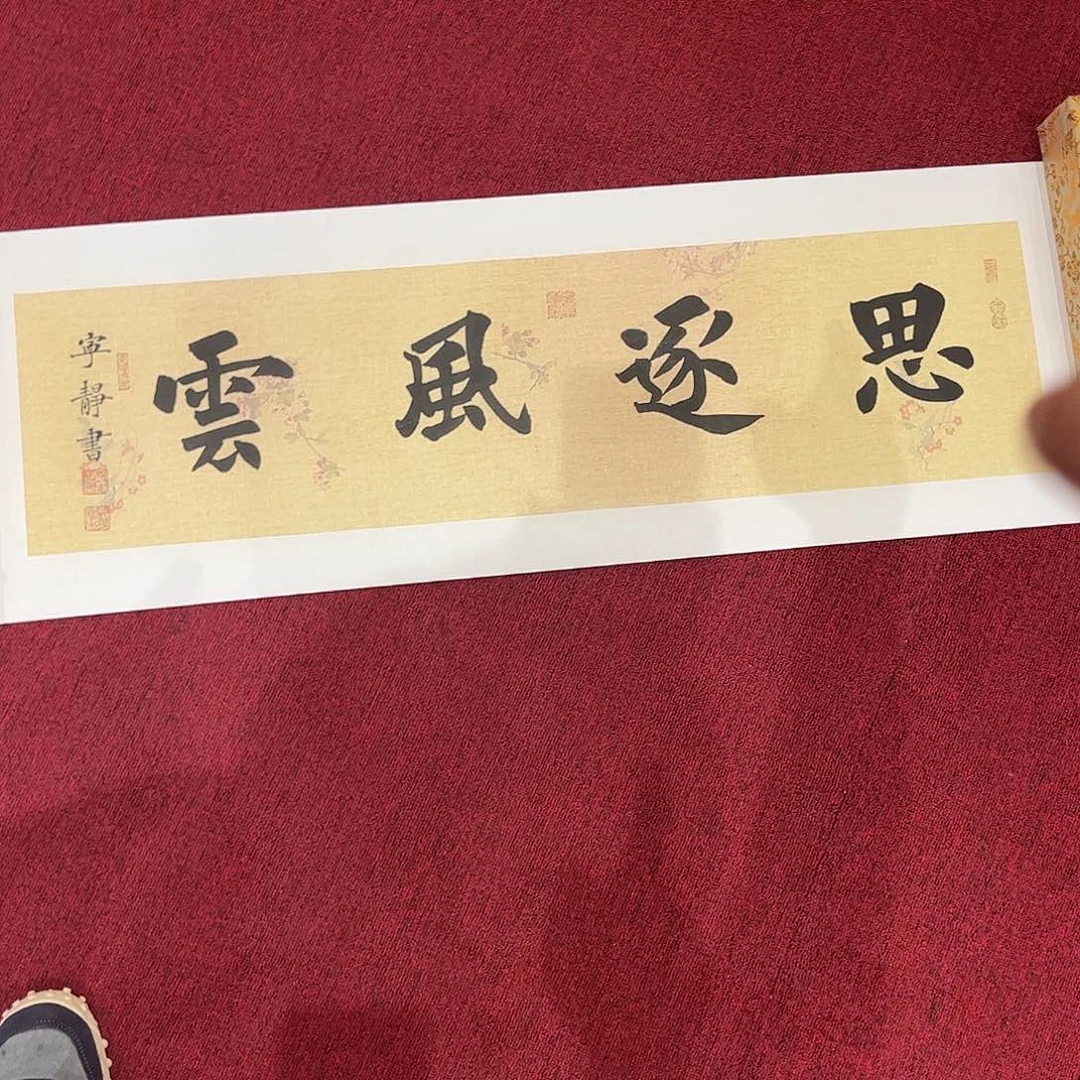 思逐風雲
寍靜書